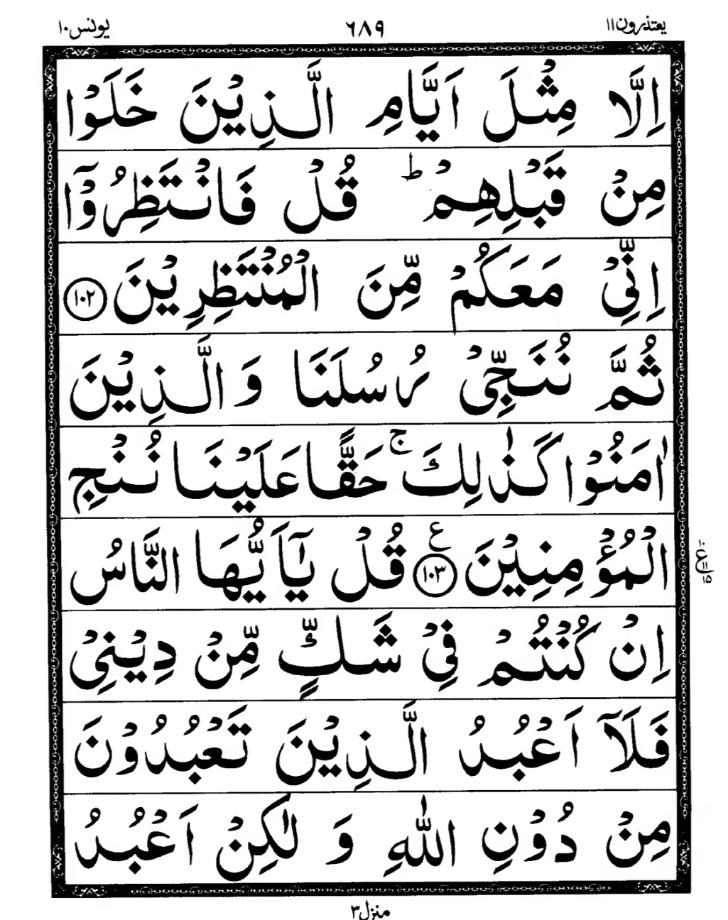 یعتذرون۱۱ ۶۸۹ یونس۱۰
اِلَّا مِثْلَ اَيَّامِ الَّذِيْنَ خَلَوْا
مِنْ قَبْلِهِمْ ؕ قُلْ فَانْتَظِرُوْۤا
اِنِّيْ مَعَكُمْ مِّنَ الْمُنْتَظِرِيْنَ ۝۱۰۲
ثُمَّ نُنَجِّيْ رُسُلَنَا وَالَّذِيْنَ
اٰمَنُوْا كَذٰلِكَ ۚ حَقًّا عَلَيْنَا نُنْجِ
الْمُؤْمِنِيْنَ ۝۱۰۳ ع قُلْ يٰۤاَيُّهَا النَّاسُ
اِنْ كُنْتُمْ فِيْ شَكٍّ مِّنْ دِيْنِيْ
فَلَاۤ اَعْبُدُ الَّذِيْنَ تَعْبُدُوْنَ
مِنْ دُوْنِ اللّٰهِ وَ لٰكِنْ اَعْبُدُ
منزل۳